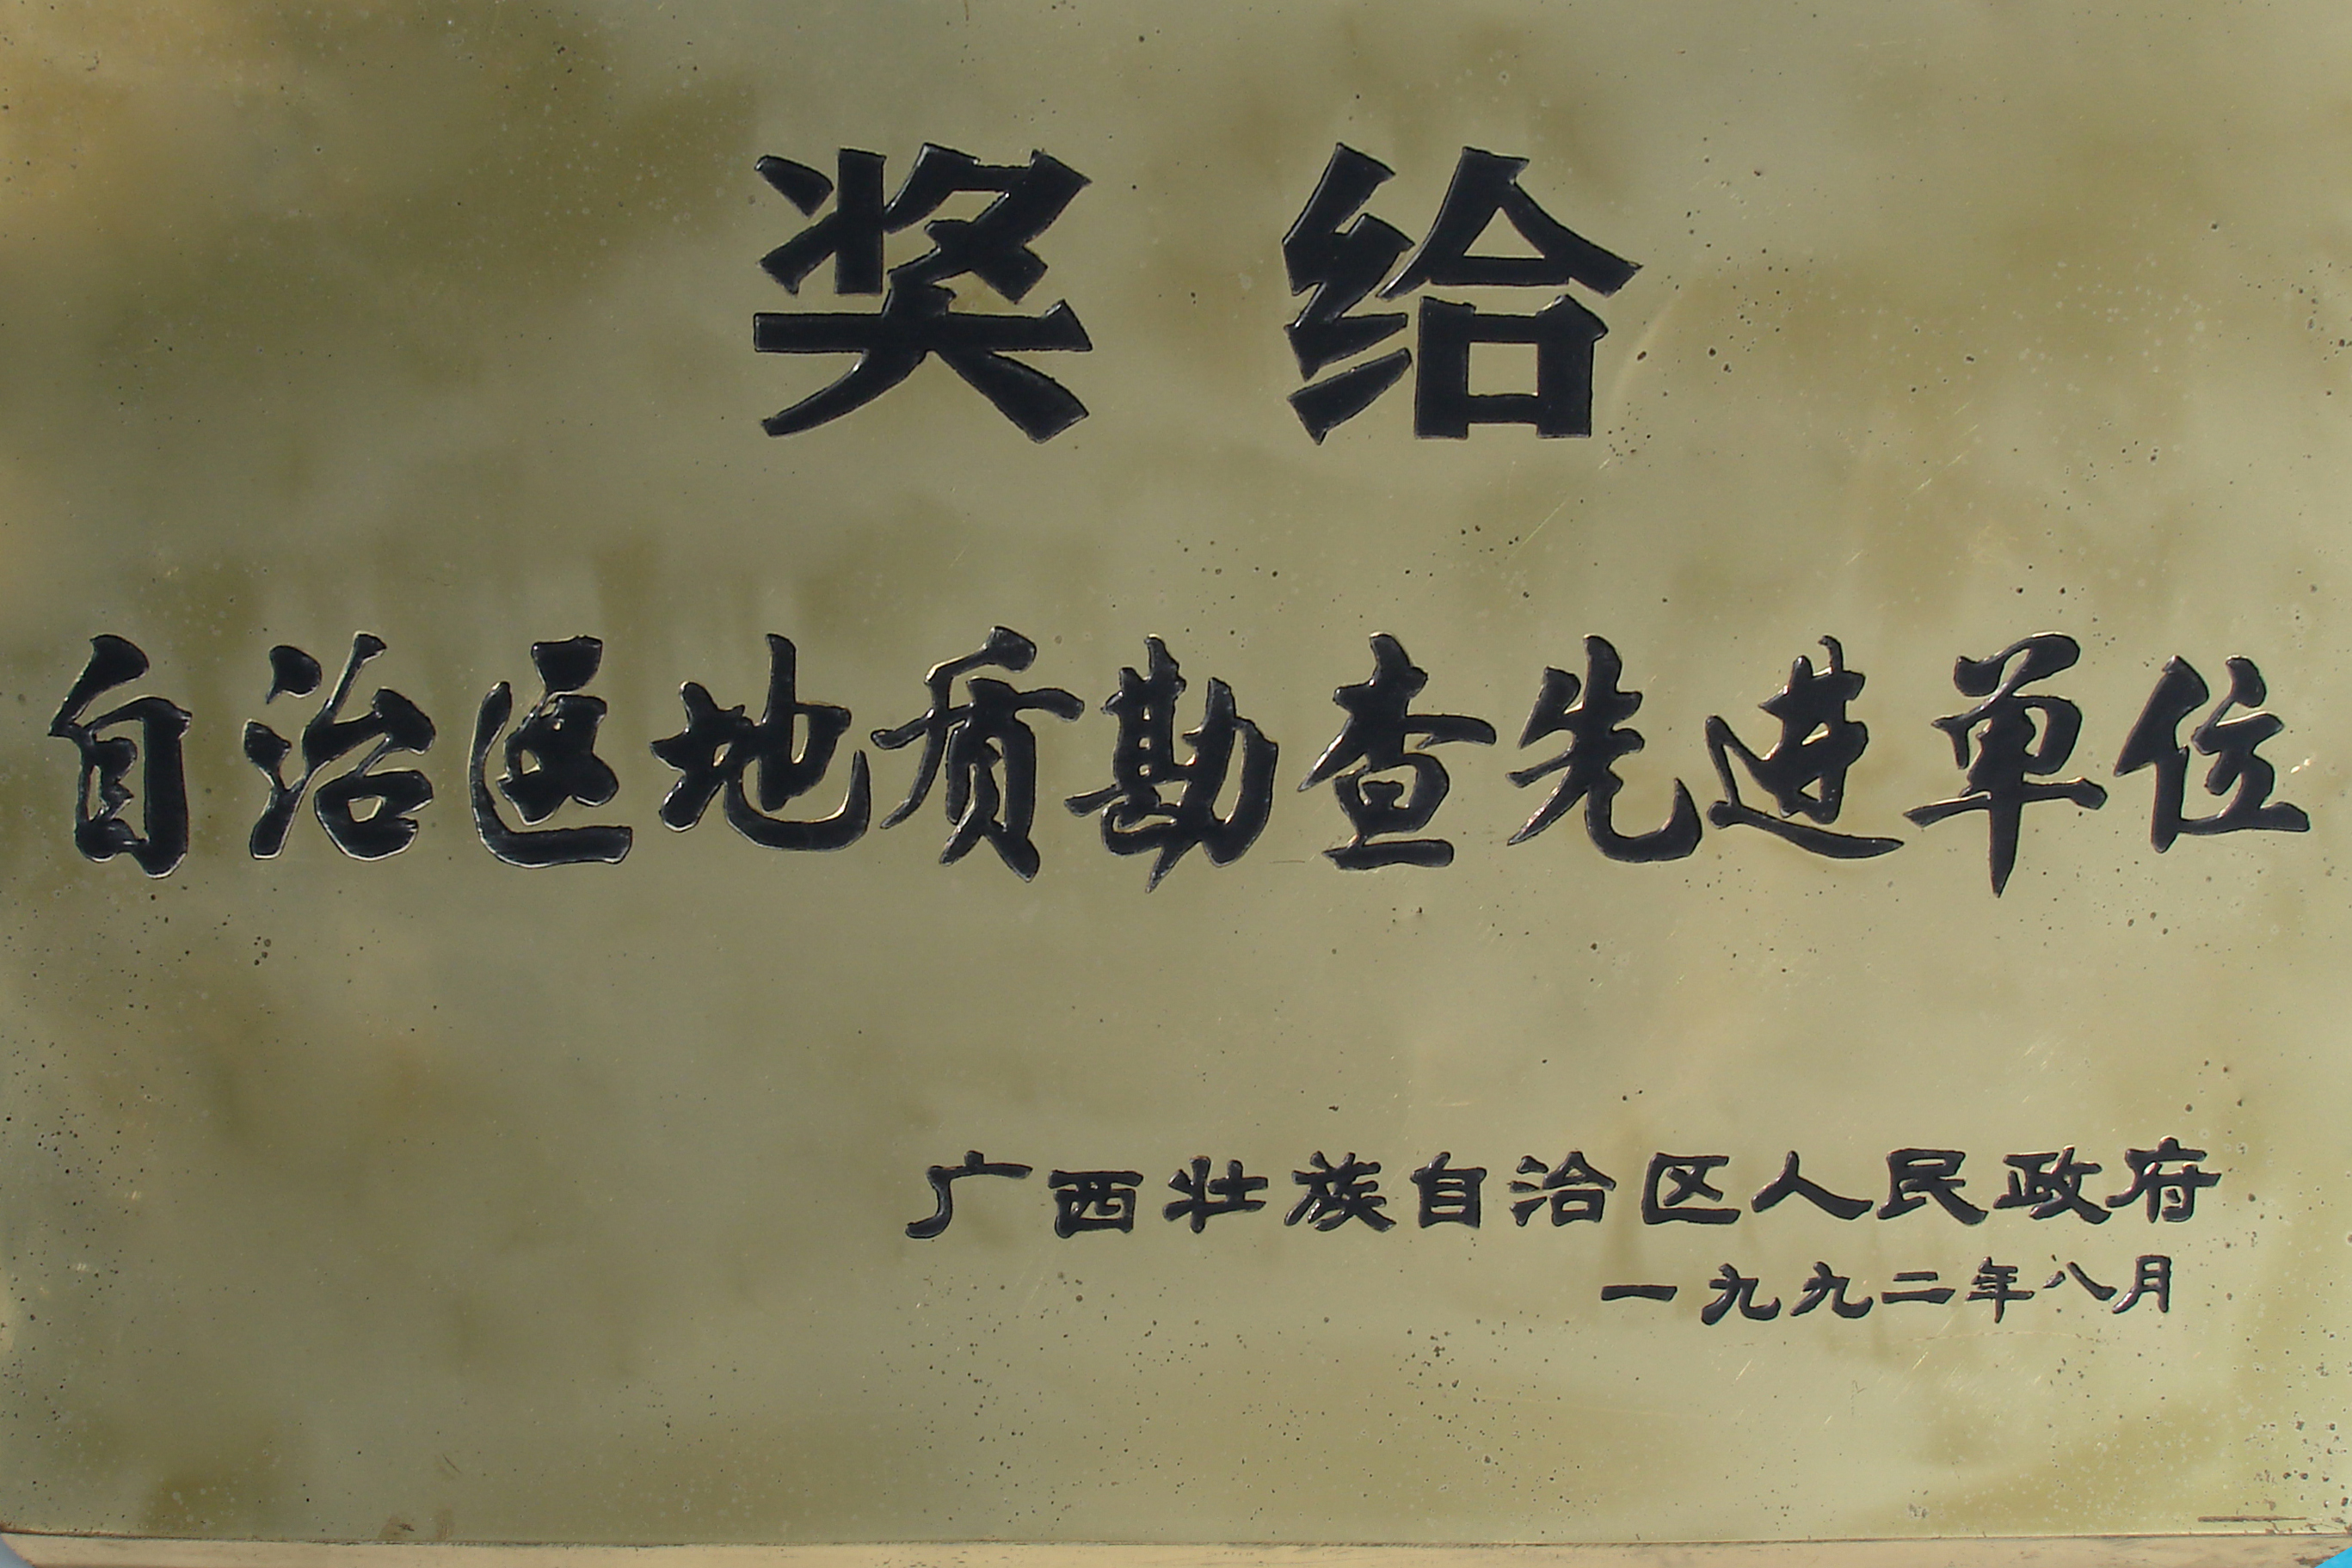 奖给
自治区地质勘查先进单位
广西壮族自治区人民政府
一九九二年八月